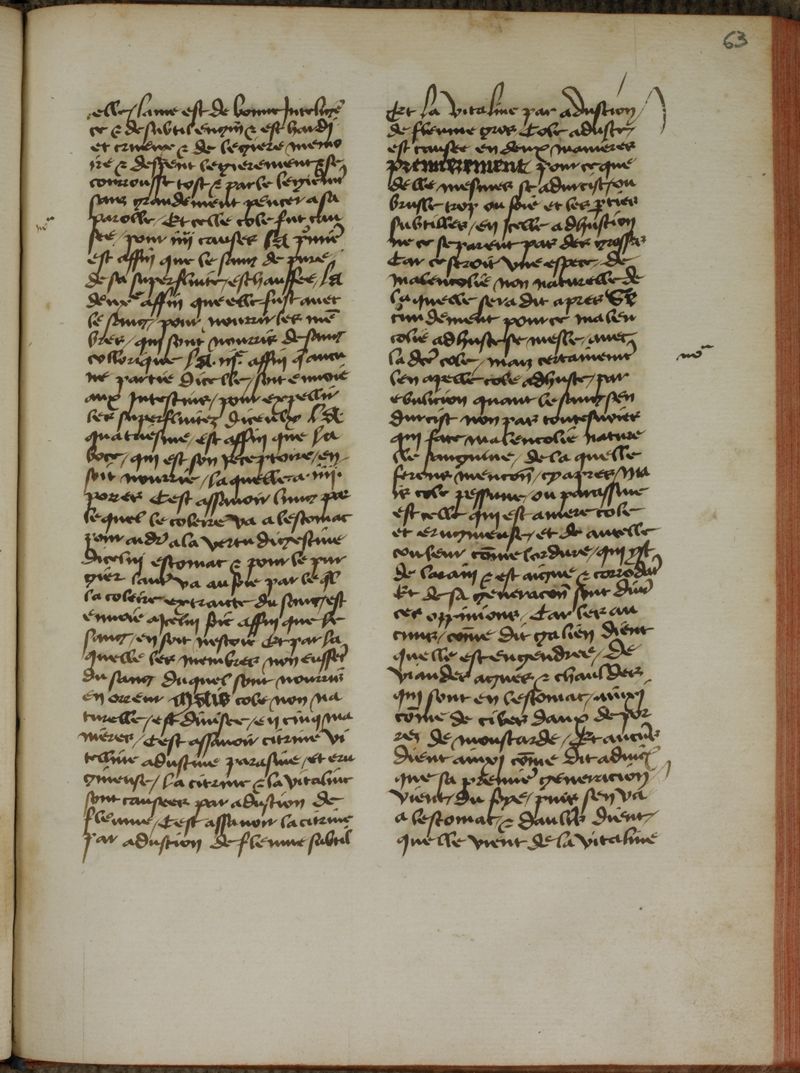 63
elle / lame est de bonne Intelligẽ
ce ⁊ de subtil engin ⁊ est hardi
et crueuse ⁊ de legiere memo
ire ⁊ despent legierement ⁊ se
courrousse tost ⁊ parle legierem̃t
sans grandement penser a sa
parolle / Et celle cole fut cau
see / pour iiii causes La p̃miere
est affin que le sang de purie /
de sa superfluite / eschauffee / La
deuxe affin que elle fust auec
le sang / pour nourrir les mẽ
bres / qui sont nourris de sang
collorique La iiie affin q̃ aucu
ne partie dicelle / soit enuoie
aux Intestins / pour expellir
les superfluitez diceulx La
quatriesme / est affin que la
boce / qui est son receptoire / en
soit nourrie / laquelle a iiii
pores Cest assauoir lung par
lequel le colere va a lestomac
pour aider a la vertu digestiue
dicelui estomac ⁊ pour le pur
gier lautre va au foie par leq̃l
la colere extraicte du sang / est
enuoie a icelui foie affin que le
sang / en soit nestoie Et par la
quelle les membres non eussẽt
du sang duquel sont nourris
en orreur cole non na
turelle / est diuisee / en cinq ma
nieres / Cest assauoir citrine vi
telline adustiue parasiue / et eru
gineuse / La citrine ⁊ la vitaline
sont causees par adustion de
fleume / Cest assauoir la citrine
par adustion de fleume subtil
Et la vitaline par adustion
de fleume gros Cole aduste /
est causee en deux manieres
premierement pour ce que
delle mesmes se adurcist / ou
brusle trop ou foie et les p̃ties
subtilles / en icelle adhustion
ne ce separent pas des grosses
Car ce seroit vne espece / de
malencolie non naturelle de
la quelle sera dit apres
cundement pour ce malen
colie adhuste se mesle / auec
la dcẽ cole / mais certainemẽt
len apelle cole adhuste / par
ebulicion quant le sang sen
durcist non pas toutesuoies
qui face malencolie nature
lle sanguine / de la quelle
ferons mencion / cy apres / Ma
is cole pessime / ou parassiue
est celle qui est amere cole
et erugineuse / et de au telle
couleur cõme lordure / qui yst
de larain ⁊ est aigue ⁊ corrodãt
Et de sa generacion sont diuer
ces oppinions / Car les au
cuns / cõme dit galien dient
quelle est engendree / de
viandes agues ⁊ chauldes
qui sont en lestomac / aiuxi
cõme de cibes daux de por
res de moustarde / Et aucũs
dient aiuxi cõme dit auic̃
que sa premiere generacion
vient / du foye / puis sen va
a lestomac / ⁊ daultres dient /
quelle vient de la vitaline